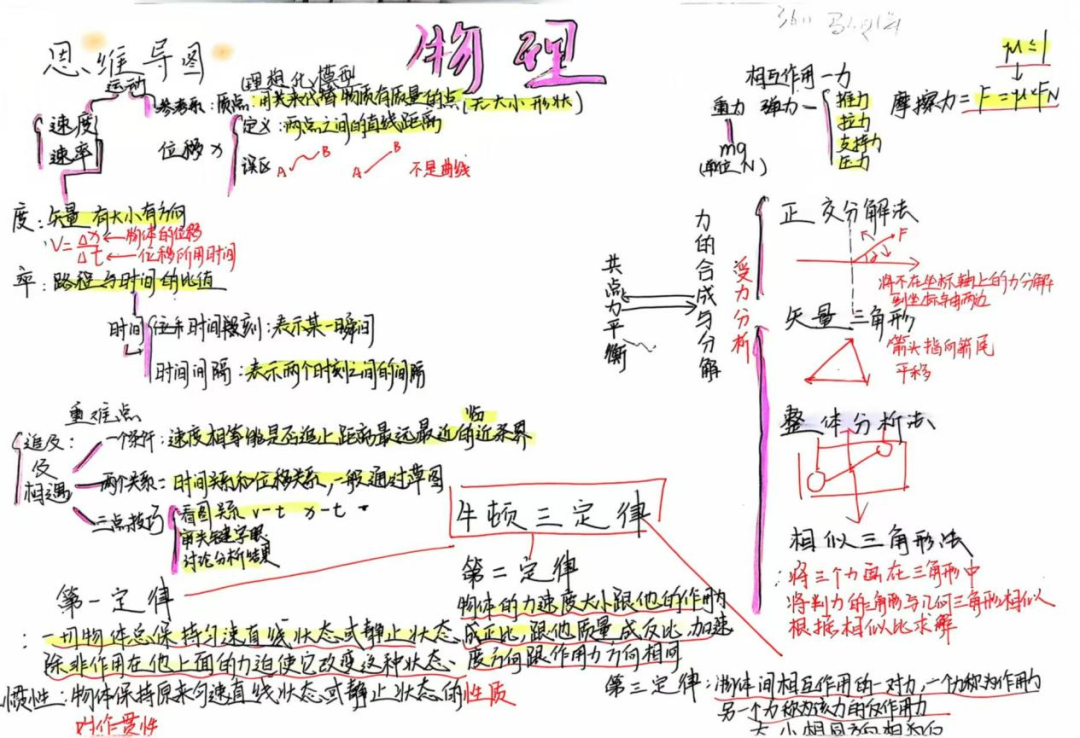 物理
思维导图
运动
速度
速率
(理想化模型
参考系:质点:用来代替物质有质量的点(无大小形状)
位移x
定义:两点之间的直线距离
误区
A B
A B
不是曲线
度:矢量 有大小有方向
V=Δx/Δt
物体的位移
位移所用时间
率:路程与时间的比值
时间
:表示某一瞬间
时间间隔:表示两个时刻之间的间隔
重难点
追及及相遇
一个条件:速度相等能是否追上距离最远最近的近条界
临
两个关系:时间关系和位移关系,一般通过草图
三点技巧
看图关系 v-t x-t
审关键字眼
讨论分析结果
相互作用一力
重力
mg
(单位N)
弹力
推力
拉力
支持力
压力
μ≤1
摩擦力=F=μ×FN
共点力平衡
力的合成与分解
受力分析
正交分解法
F
将不在坐标轴上的力分解
到坐标轴两边
矢量三角形
箭头指向箭尾
平移
整体分析法
相似三角形法
:将三个力画在三角形中
将判力的三角形与几何三角形相似
根据相似比求解
牛顿三定律
第一定律
:一切物体总保持匀速直线状态或静止状态、
除非作用在他上面的力迫使它改变这种状态、
惯性:物体保持原来匀速直线状态或静止状态的性质
叫作贯性
第二定律
物体的力速度大小跟他的作用力
成正比,跟他质量成反比,加速
度方向跟作用力方向相同
第三定律:物体间相互作用的一对力,一个力称为作用力
另一个力称为该力的反作用力
大小相同方向相